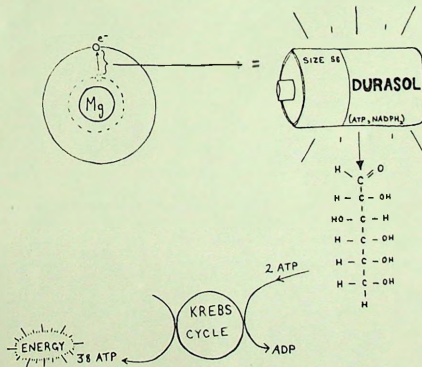 e-
Mg
=
SIZE 58
DURASOL
(ATP, NADPH2)
H O
C
H - C - OH
HO - C - H
H - C - OH
H - C - OH
H - C - OH
H
2 ATP
KREBS
CYCLE
ADP
38 ATP
ENERGY